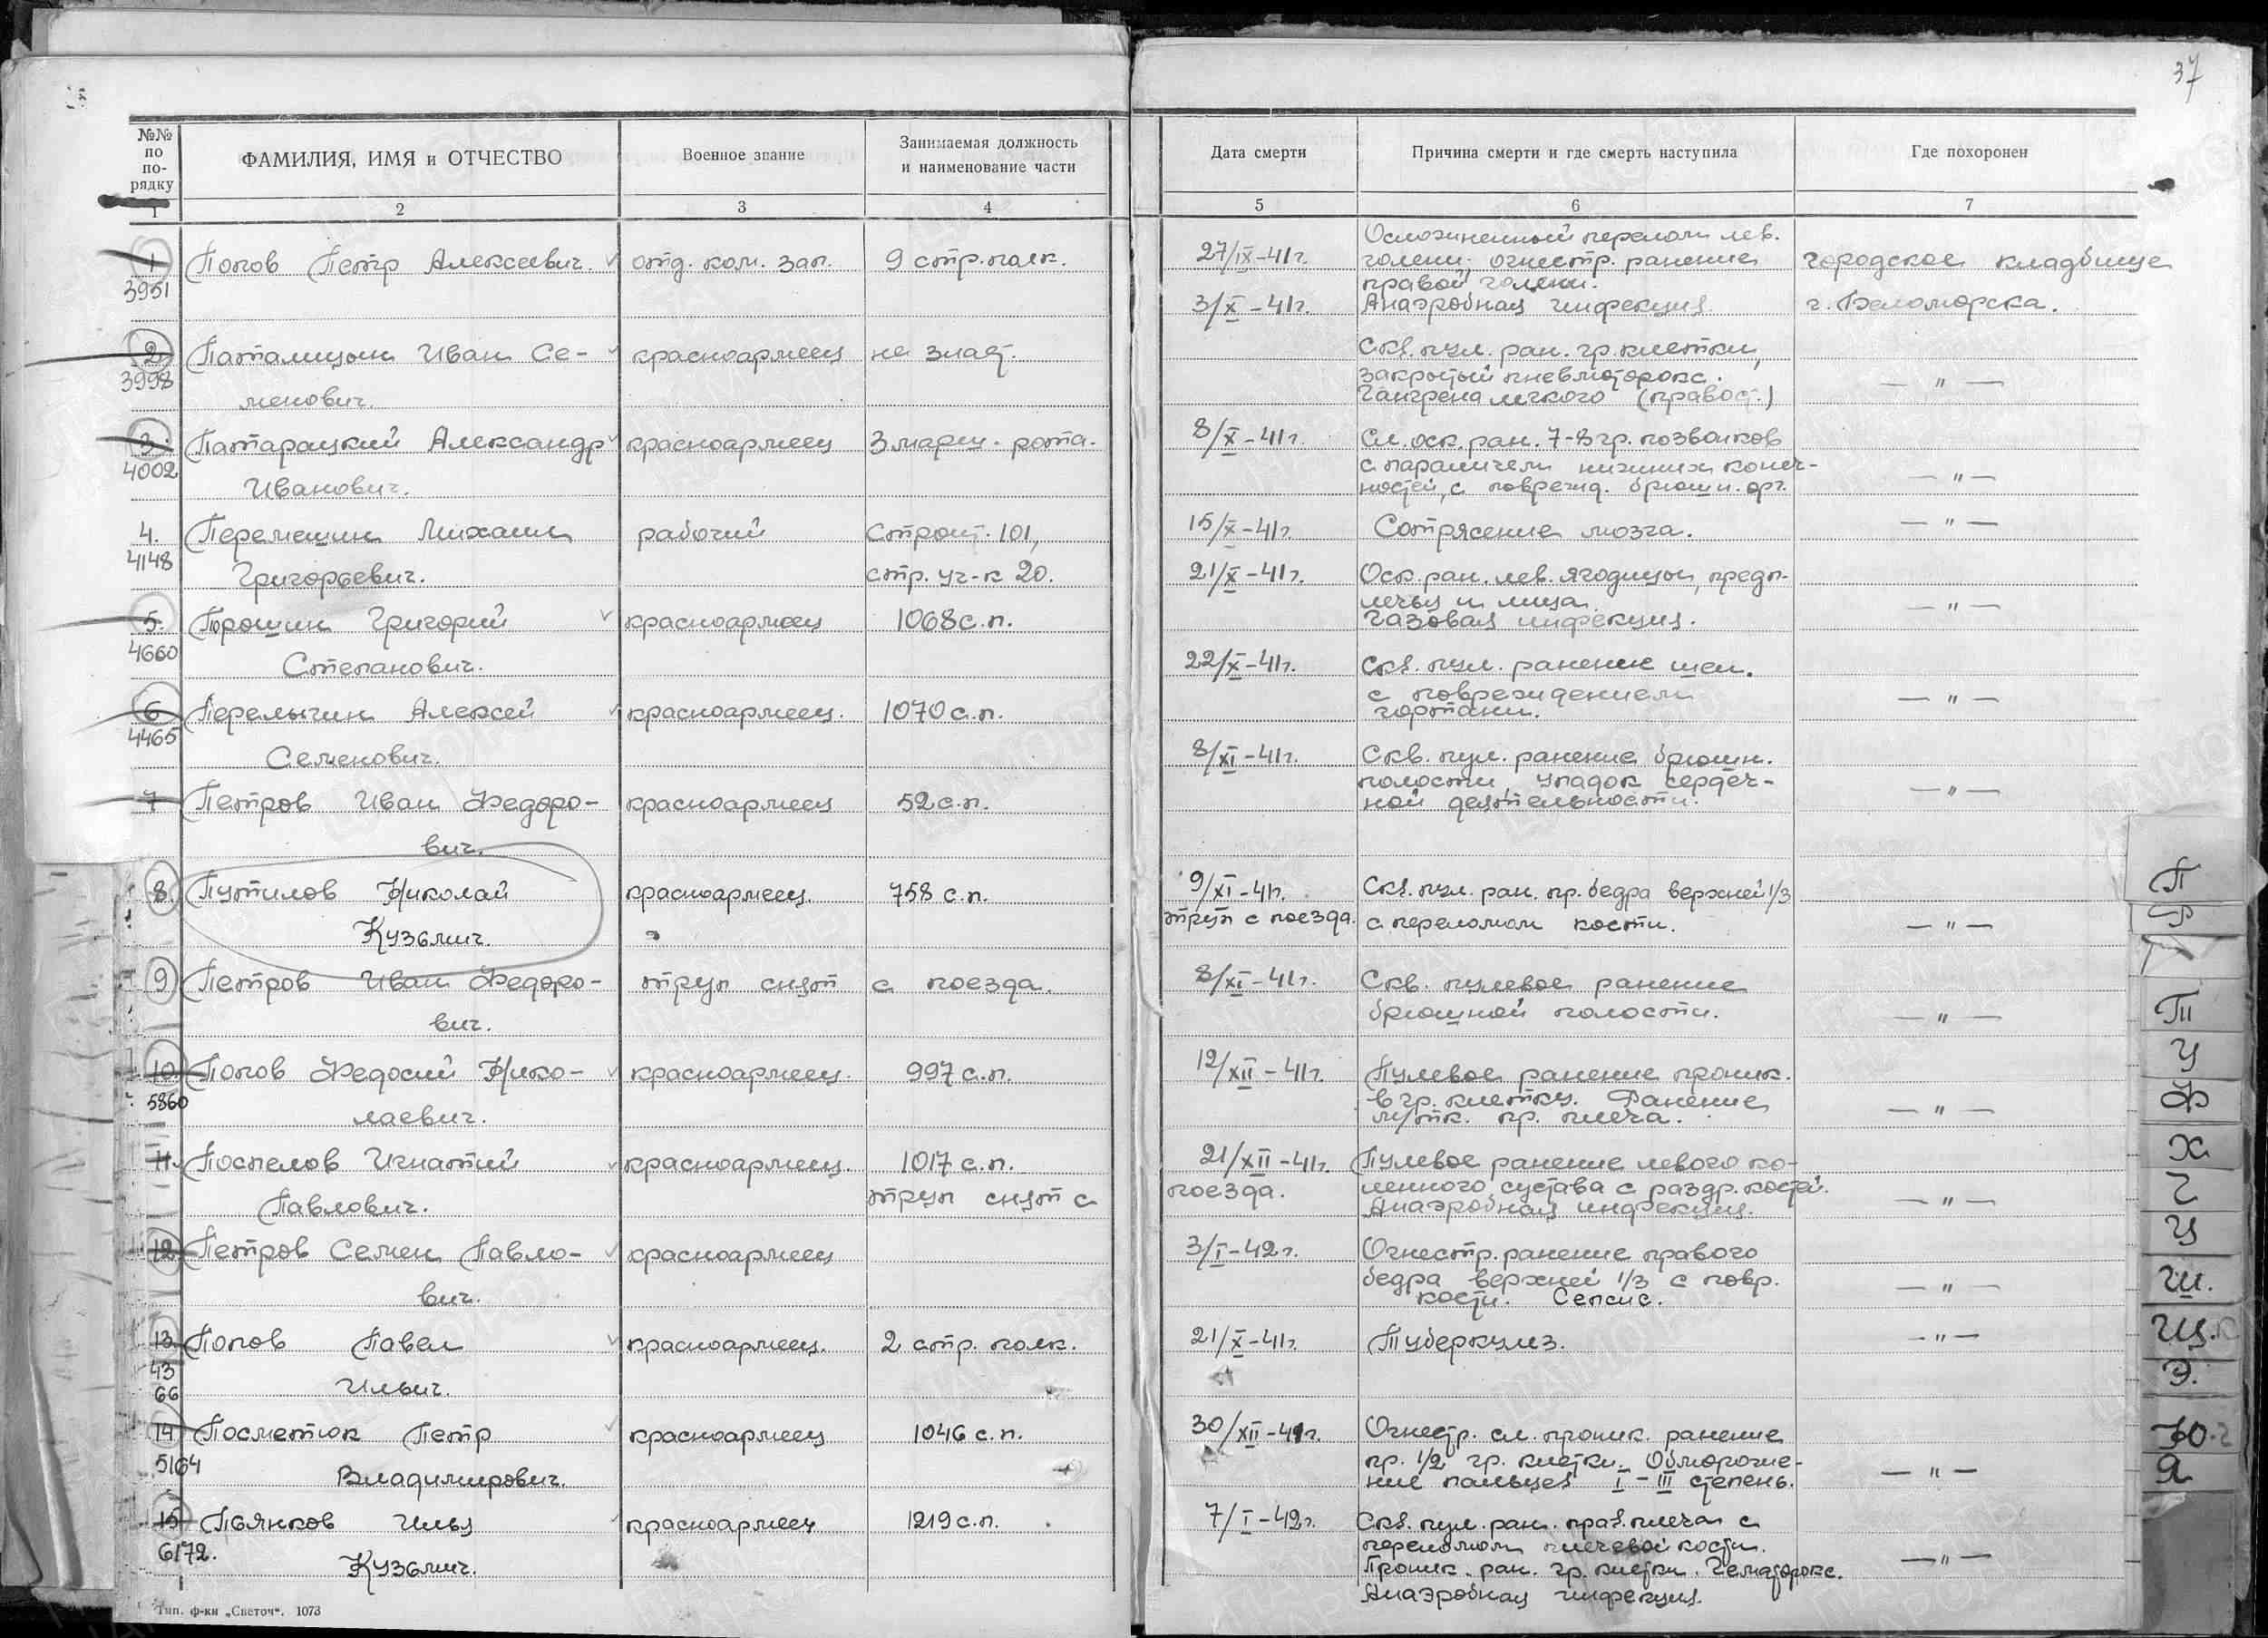 37
№№ по по-рядку
ФАМИЛИЯ, ИМЯ и ОТЧЕСТВО
Военное звание
Занимаемая должность и наименование части
Дата смерти
Причина смерти и где смерть наступила
Где похоронен
1 2 3 4 5 6 7
1 Попов Петр Алексеевич. отд. ком. зап. 9 стр. полк. 27/IX-41г. Осложненный перелом лев.
голени; огнестр. ранение городское кладбище
3951 правой голени.
3/X-41г. Анаэробная инфекция. г. Беломорска.
2 Паталицын Иван Се- красноармеец не знает. Скв. пул. ран. гр. клетки,
3998 закрытый пневмоторокс. — " —
менович. Гангрена легкого (правост.)
3. Патарацкий Александр красноармеец 3 марш. рота. 8/X-41г. Сл. оск. ран. 7-8 гр. позвонков
4002 с параличем нижних конеч-
Иванович. ностей, с поврежд. брюшн. орг. — " —
4. Перемешин Михаил рабочий Строит. 101, 15/X-41г. Сотрясение мозга. — " —
4148
Григорьевич. стр. уч-к 20. 21/X-41г. Оск. ран. лев. ягодицы, предп-
лечья и лица. — " —
5. Порошин Григорий красноармеец 1068 с.п. Газовая инфекция.
4660
Степанович. 22/X-41г. Скв. пул. ранение шеи.
с повреждением — " —
6 Перелыгин Алексей красноармеец. 1070 с.п. гортани.
4465
Семенович. 8/XI-41г. Скв. пул. ранение брюшн.
полости, упадок сердеч- — " —
7 Петров Иван Федоро- красноармеец 52 с.п. ной деятельности.
вич.
8. Путилов Николай красноармеец. 758 с.п. 9/XI-41г. Скв. пул. ран. пр. бедра верхней 1/3
Кузьмич. труп с поезда. с переломом кости. — " —
9 Петров Иван Федоро- труп снят с поезда. 8/XI-41г. Скв. пулевое ранение
вич. брюшной полости. — " —
10. Попов Федосий Нико- красноармеец. 997 с.п. 12/XII-41г. Пулевое ранение проник.
5860 в гр. клетку. Ранение — " —
лаевич. м/тк. пр. плеча.
11. Поспелов Игнатий красноармеец. 1017 с.п. 21/XII-41г. Пулевое ранение левого ко-
труп снят с поезда. ленного сустава с раздр. костей. — " —
Павлович. Анаэробная инфекция.
12. Петров Семен Павло- красноармеец 3/I-42г. Огнестр. ранение правого
бедра верхней 1/3 с повр. — " —
вич. кости. Сепсис.
13. Попов Павел красноармеец. 2 стр. полк. 21/X-41г. Туберкулез. — " —
43
66 Ильич.
14 Посметюк Петр красноармеец 1046 с.п. 30/XII-41г. Огнестр. сл. проник. ранение
5164 пр. 1/2 гр. клетки. Обмороже- — " —
Владимирович. ние пальцев I-III степень.
15 Пьянков Илья красноармеец 1219 с.п. 7/I-42г. Скв. пул. ран. прав. плеча с
6172. переломом плечевой кости. — " —
Кузьмич. Проник. ран. гр. клетки. Гематорокс.
Анаэробная инфекция.
Тип. ф-ки „Светоч". 1073
П
Р
Т
У
Ф
Х
Ч
Ц
Ш.
Щ.
Э.
Ю.
Я